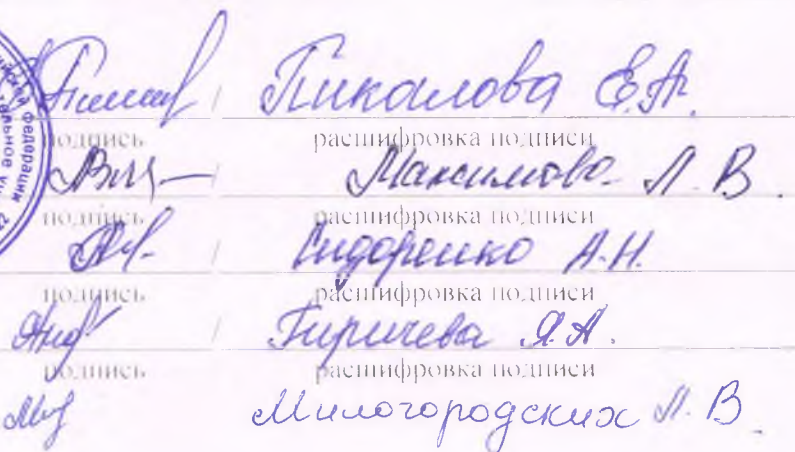 Пикалова Е.А.
подпись расшифровка подписи
Максимова Л.В.
подпись расшифровка подписи
Сидоренко А.Н.
подпись расшифровка подписи
Я.А.
подпись расшифровка подписи
Милогородских Л.В.
Федерации